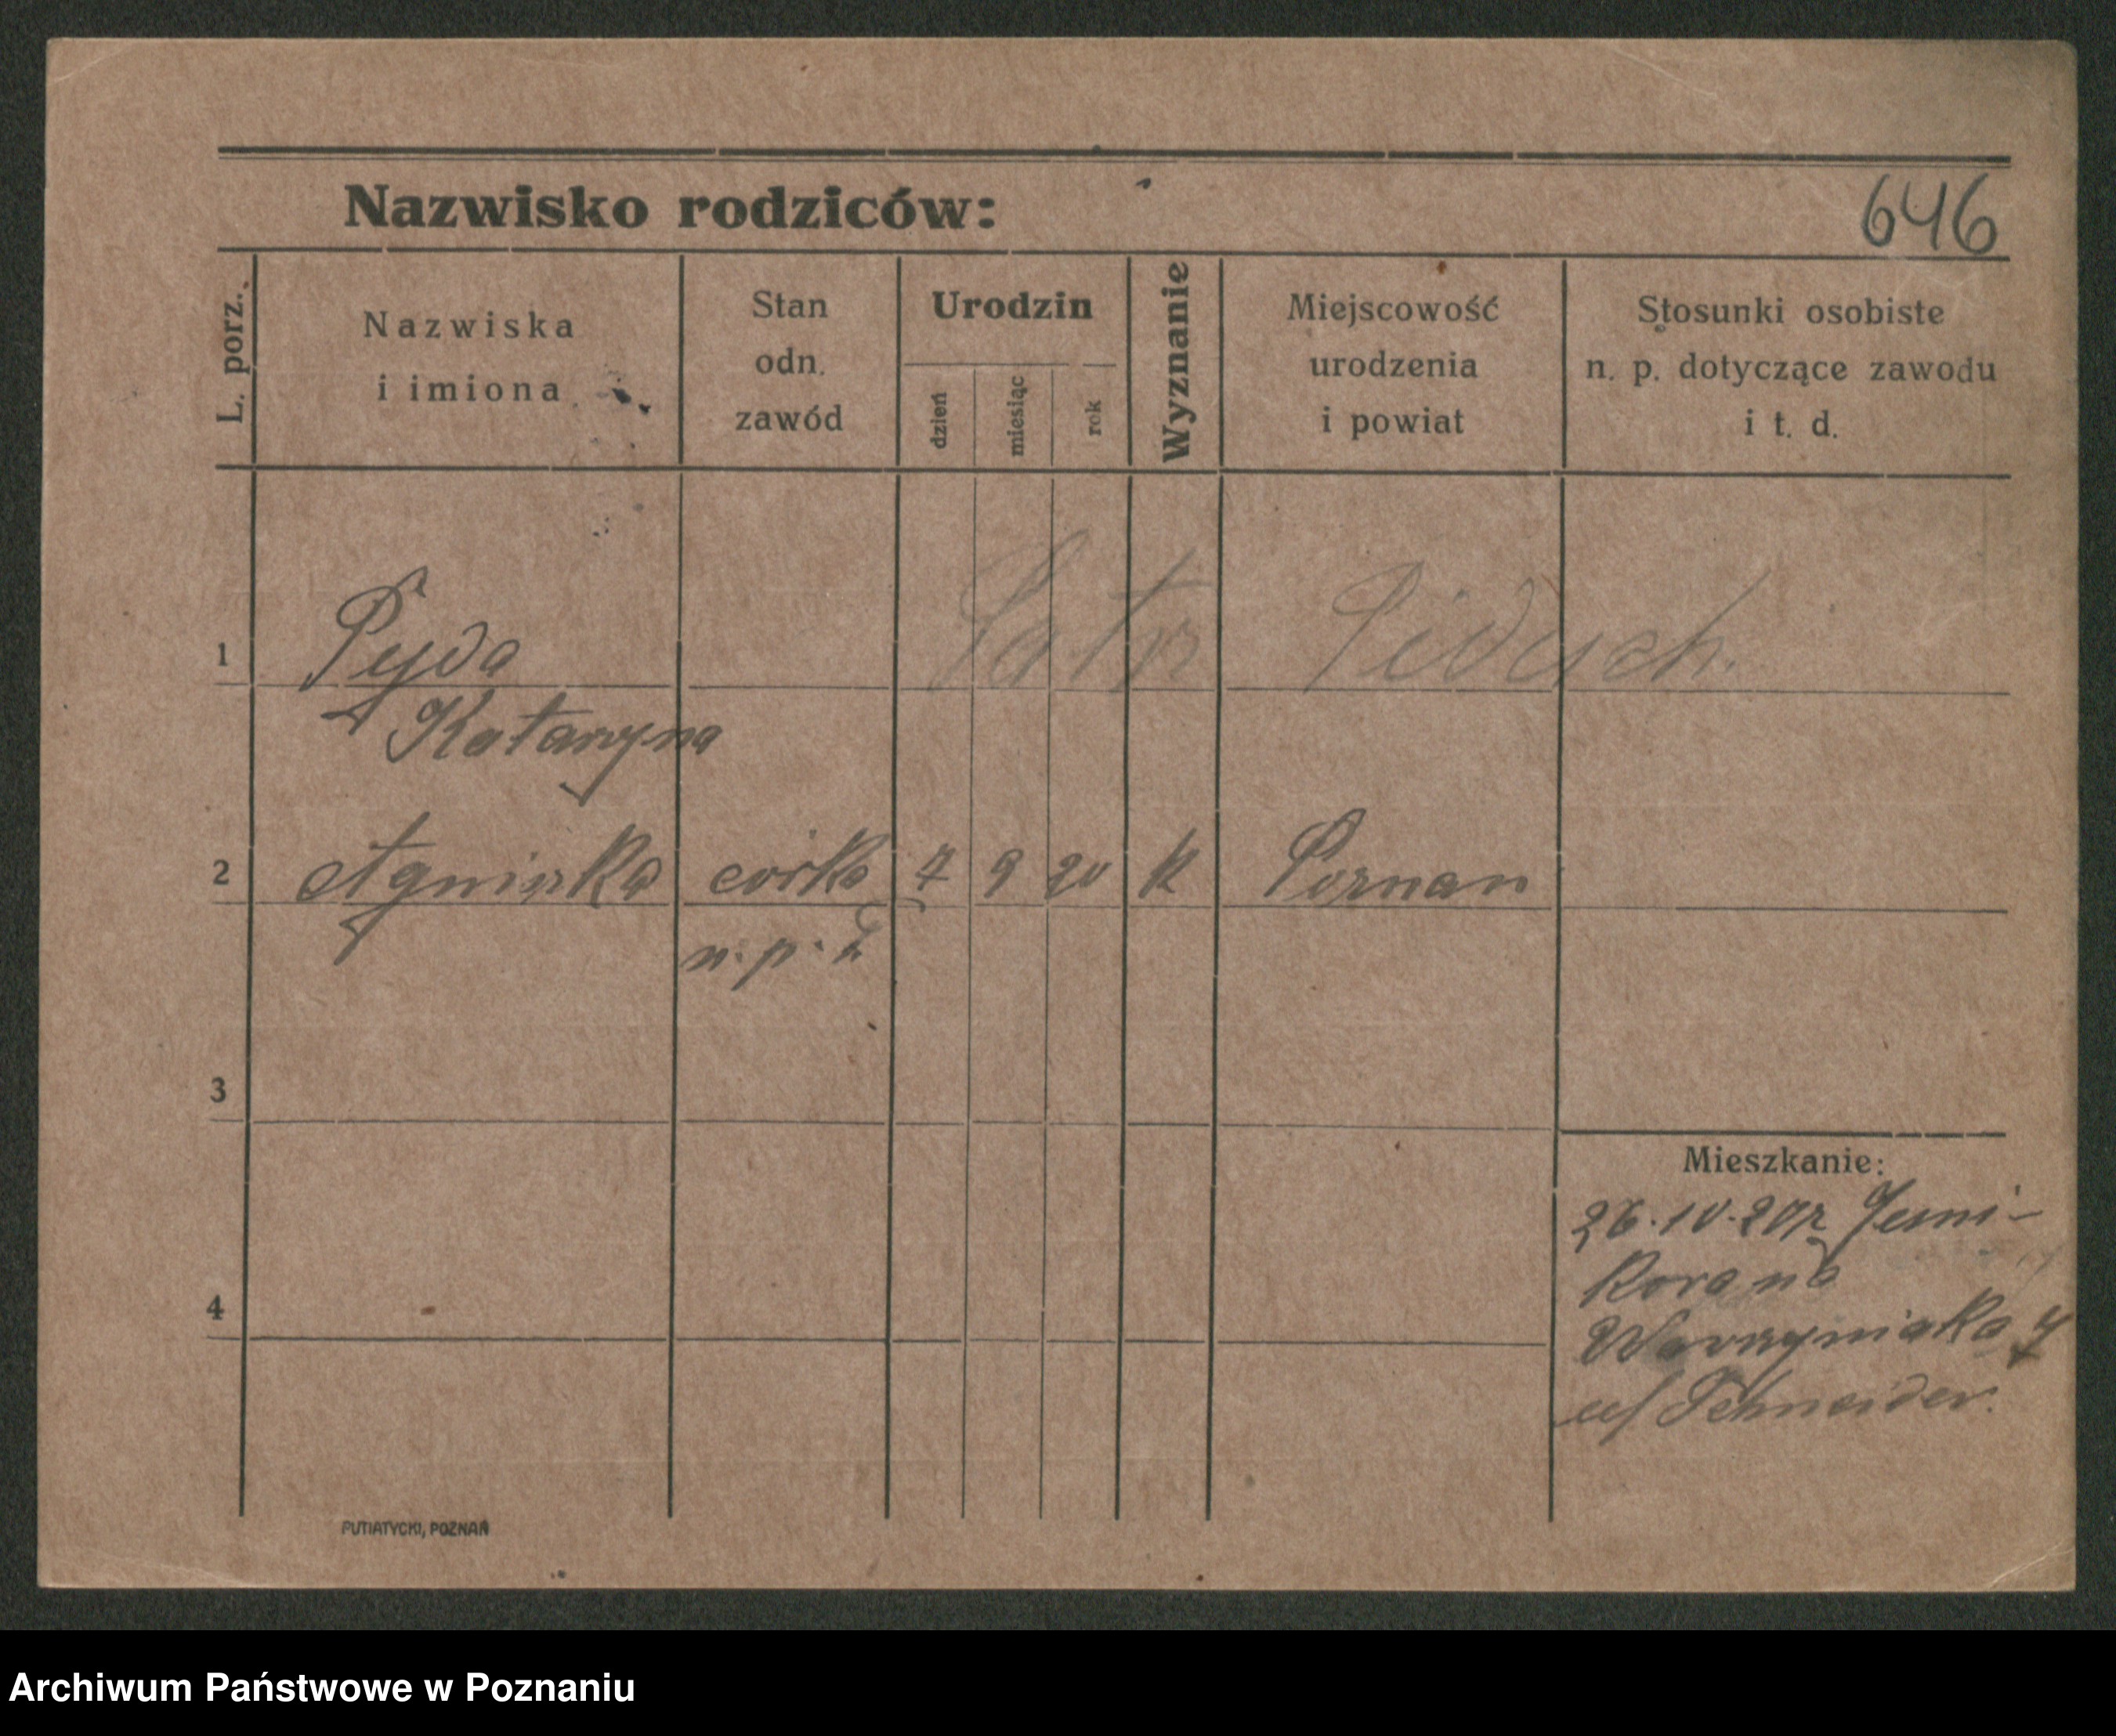 Nazwisko rodziców:
646
L. porz.
Nazwiska
i imiona
Stan
odn.
zawód
Urodzin
dzień
miesiąc
rok
Wyznanie
Miejscowość
urodzenia
i powiat
Stosunki osobiste
n. p. dotyczące zawodu
i t. d.
1 Pyda
Katarzyna
2 Agniszka córka 7 9 20 k Poznan
3
4
Mieszkanie:
26.10.20r
Schneider.
PUTIATYCKI, POZNAŃ
Archiwum Państwowe w Poznaniu